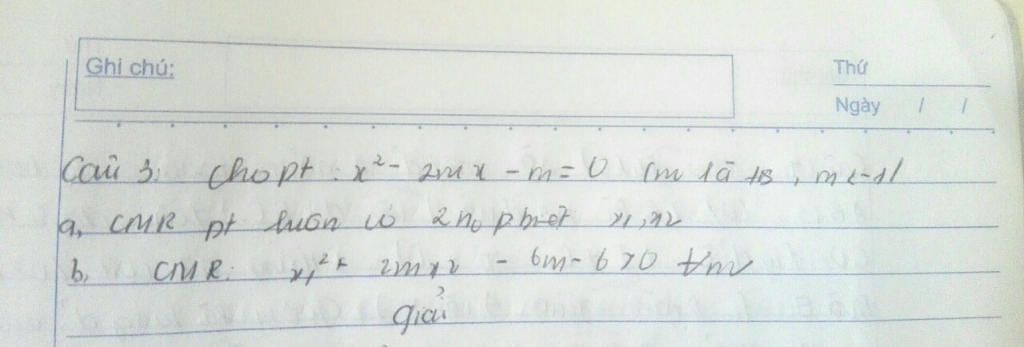 Ghi chú:
Thứ
Ngày / /
Câu 3: Cho pt: x² - 2mx - m = 0 (m là ts, m<-1)
a, CMR pt luôn có 2 n₀ pbiệt x₁, x₂
b, CMR: x₁² + 2mx₂ - 6m - 6 > 0 ∀m
Giải